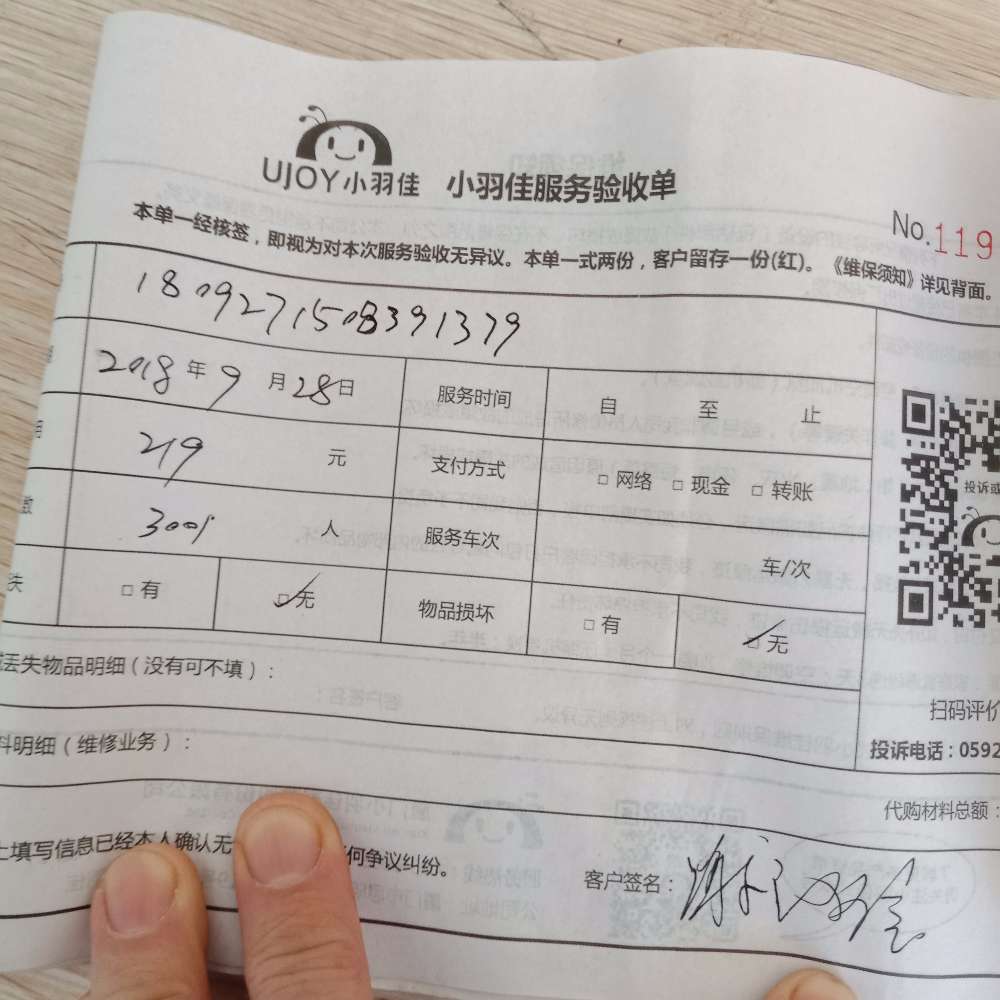 UJOY小羽佳 小羽佳服务验收单
No.119
本单一经核签，即视为对本次服务验收无异议。本单一式两份，客户留存一份(红)。《维保须知》详见背面。
1809271508391379
2018年9月28日 服务时间 自 至 止
219 元 支付方式 □网络 □现金 □转账
投诉或
数 人 服务车次 车/次
失 □有 □无 物品损坏 □有 □无
丢失物品明细（没有可不填）：
扫码评价
料明细（维修业务）：
投诉电话：0592
代购材料总额：
上填写信息已经本人确认无 何争议纠纷。
客户签名：